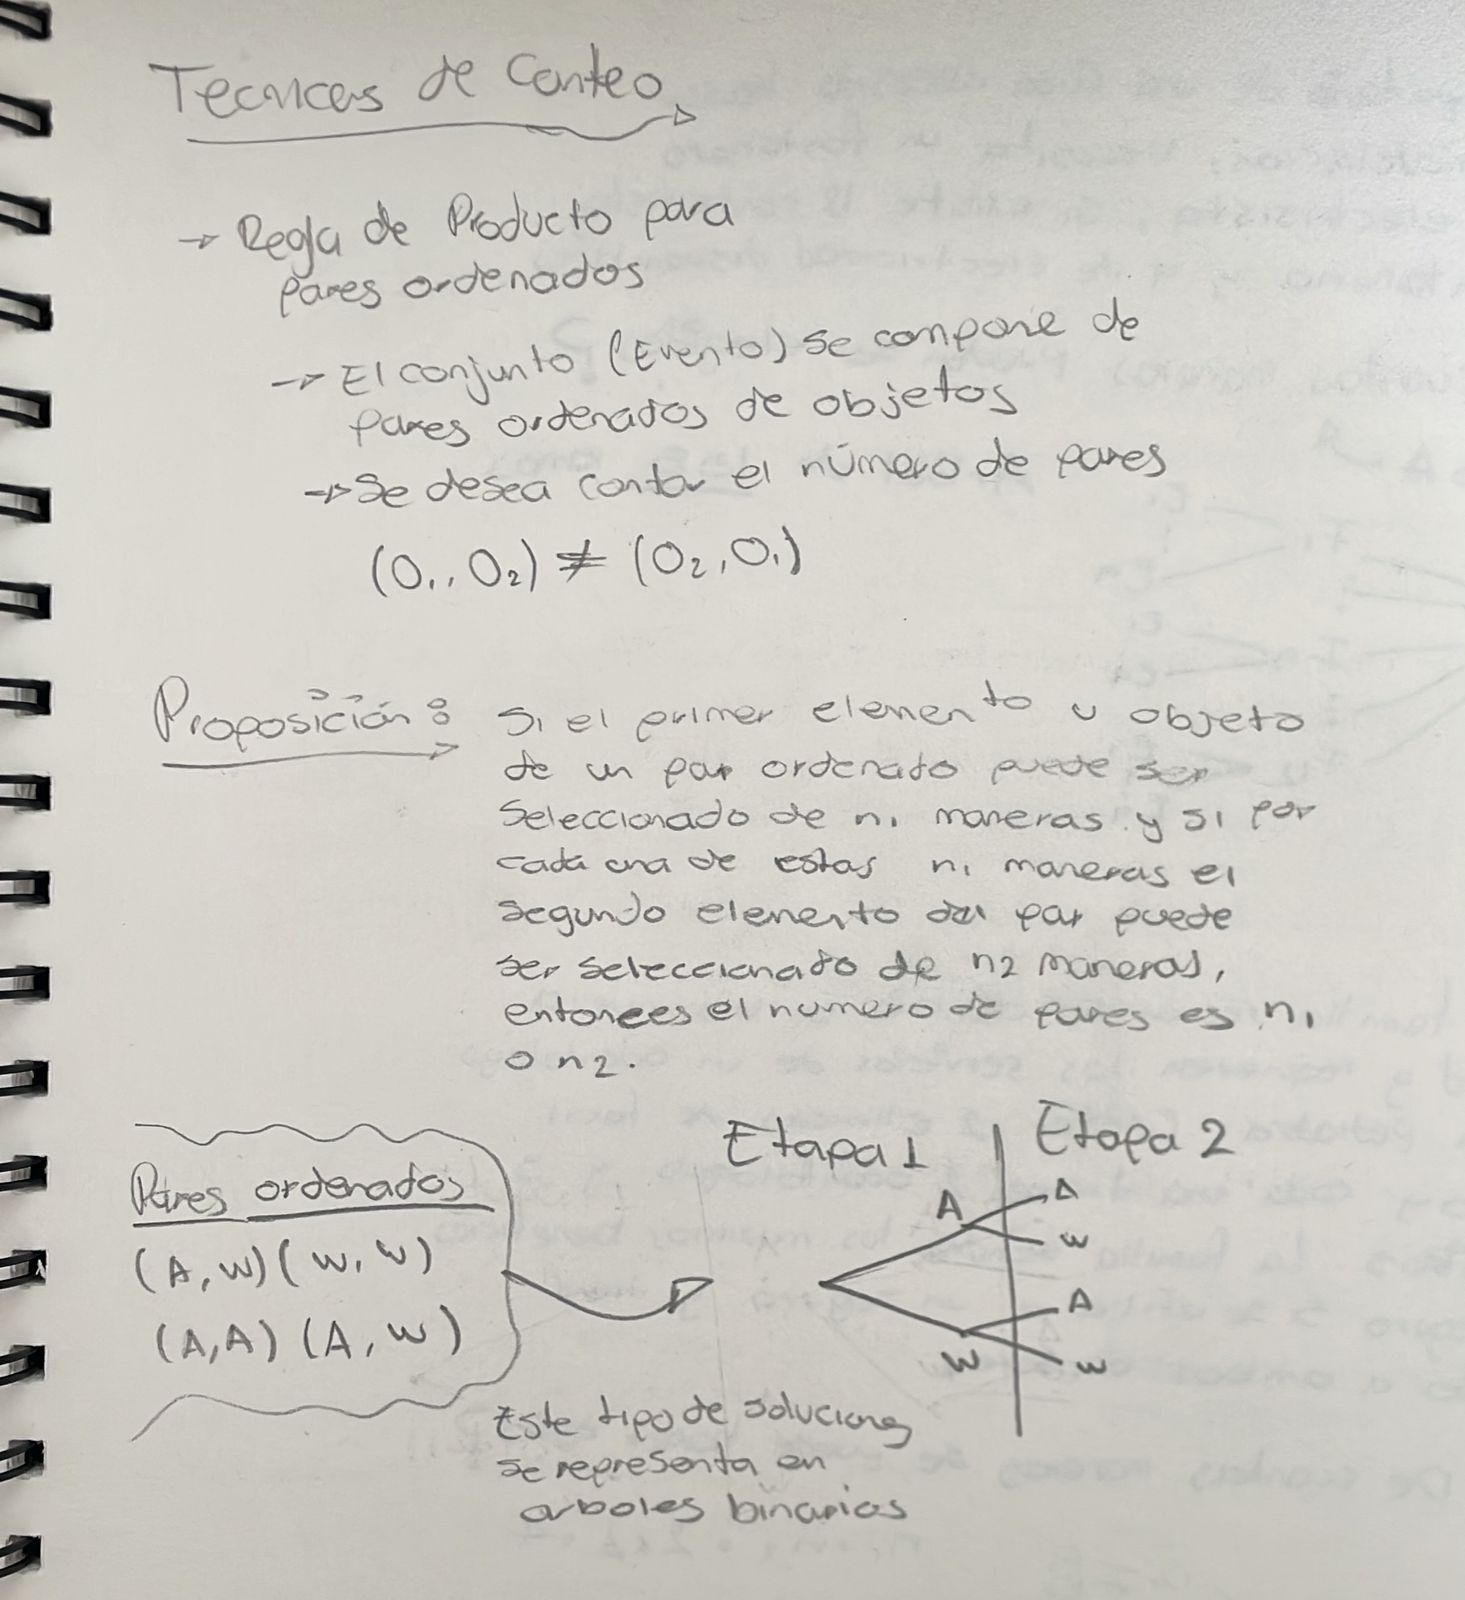 Tecnicas de Conteo
→ Regla de Producto para
pares ordenados
→ El conjunto (Evento) se compone de
pares ordenados de objetos
→ Se desea contar el número de pares
(O₁, O₂) ≠ (O₂, O₁)
Proposición: Si el primer elemento u objeto
de un par ordenado puede ser
seleccionado de n₁ maneras y si por
cada una de estas n₁ maneras el
segundo elemento del par puede
ser seleccionado de n2 maneras,
entonces el numero de pares es n₁
o n2.
Pares ordenados
(A, W) (W, W)
(A, A) (A, W)
Etapa 1 Etapa 2
A A
W
A
W W
Este tipo de soluciones
se representa en
arboles binarios